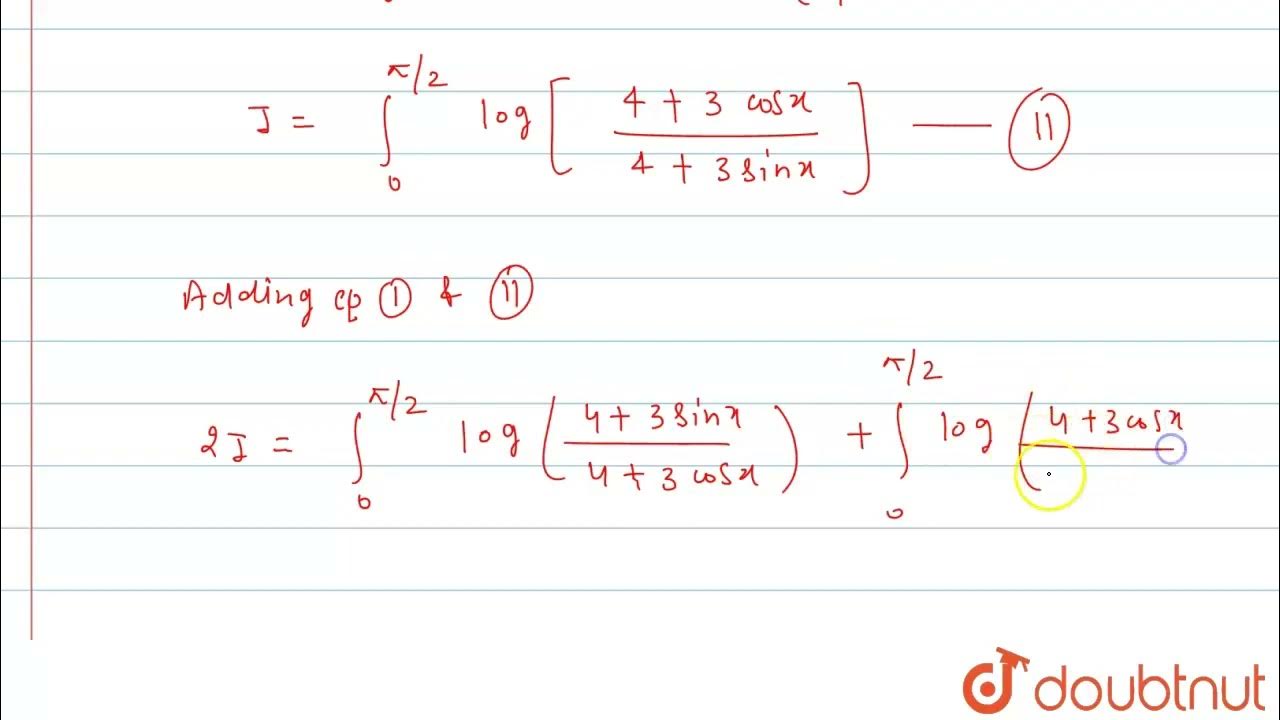 I = ∫₀^π/2 log [ (4 + 3 cosx) / (4 + 3 sinx) ] — (II)
Adding eq (I) & (II)
2I = ∫₀^π/2 log ( (4 + 3 sinx) / (4 + 3 cosx) ) + ∫₀^π/2 log ( 4 + 3 cosx
doubtnut